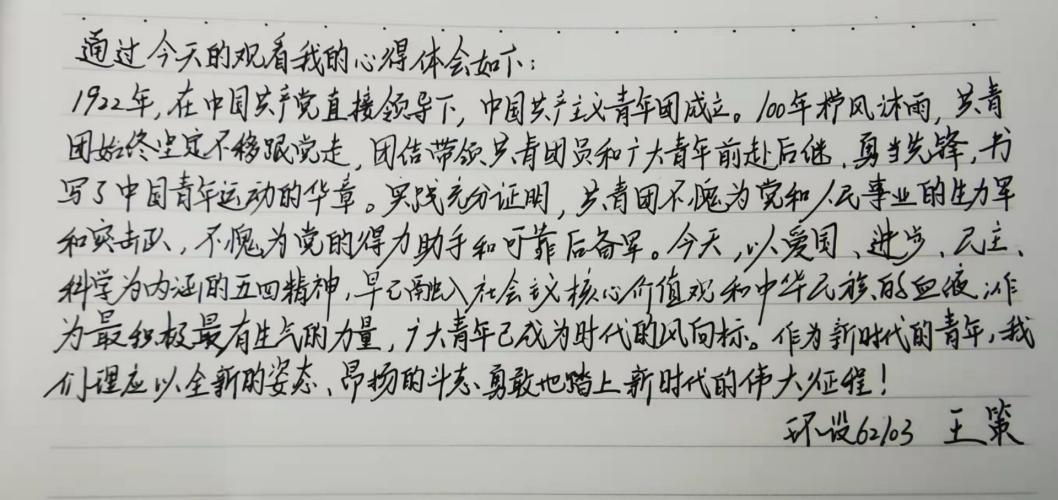 通过今天的观看我的心得体会如下：
1922年，在中国共产党直接领导下，中国共产主义青年团成立。100年栉风沐雨，共青
团始终坚定不移跟党走，团结带领共青团员和广大青年前赴后继、勇当先锋，书
写了中国青年运动的华章。实践充分证明，共青团不愧为党和人民事业的生力军
和突击队，不愧为党的得力助手和可靠后备军。今天，以爱国、进步、民主、
科学为内涵的五四精神，早已融入社会主义核心价值观和中华民族的血液；作
为最积极最有生气的力量，广大青年已成为时代的风向标。作为新时代的青年，我
们理应以全新的姿态、昂扬的斗志、勇敢地踏上新时代的伟大征程！
环设62103 王策